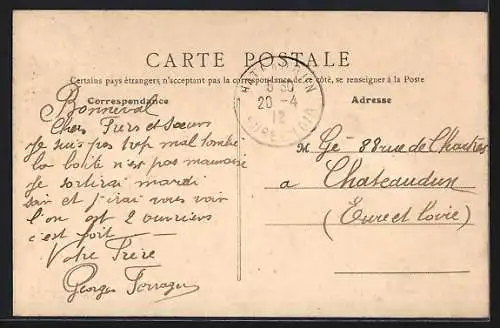 CARTE POSTALE
Certains pays étrangers n'acceptant pas la correspondance de ce côté, se renseigner à la Poste
Correspondance
Adresse
20 - 4
12
Bonneval
Chers Frers et Sœurs
Je suis pas trop mal tombé
la boîte n'est pas mauvaise
Je sortirai mardi
soir et j'irai vous voir
l'on est 2 ouvriers
c'est fort
Votre Frère
Georges
M Gé 88 rue de Chartres
a Chateaudun
(Eure et Loire)